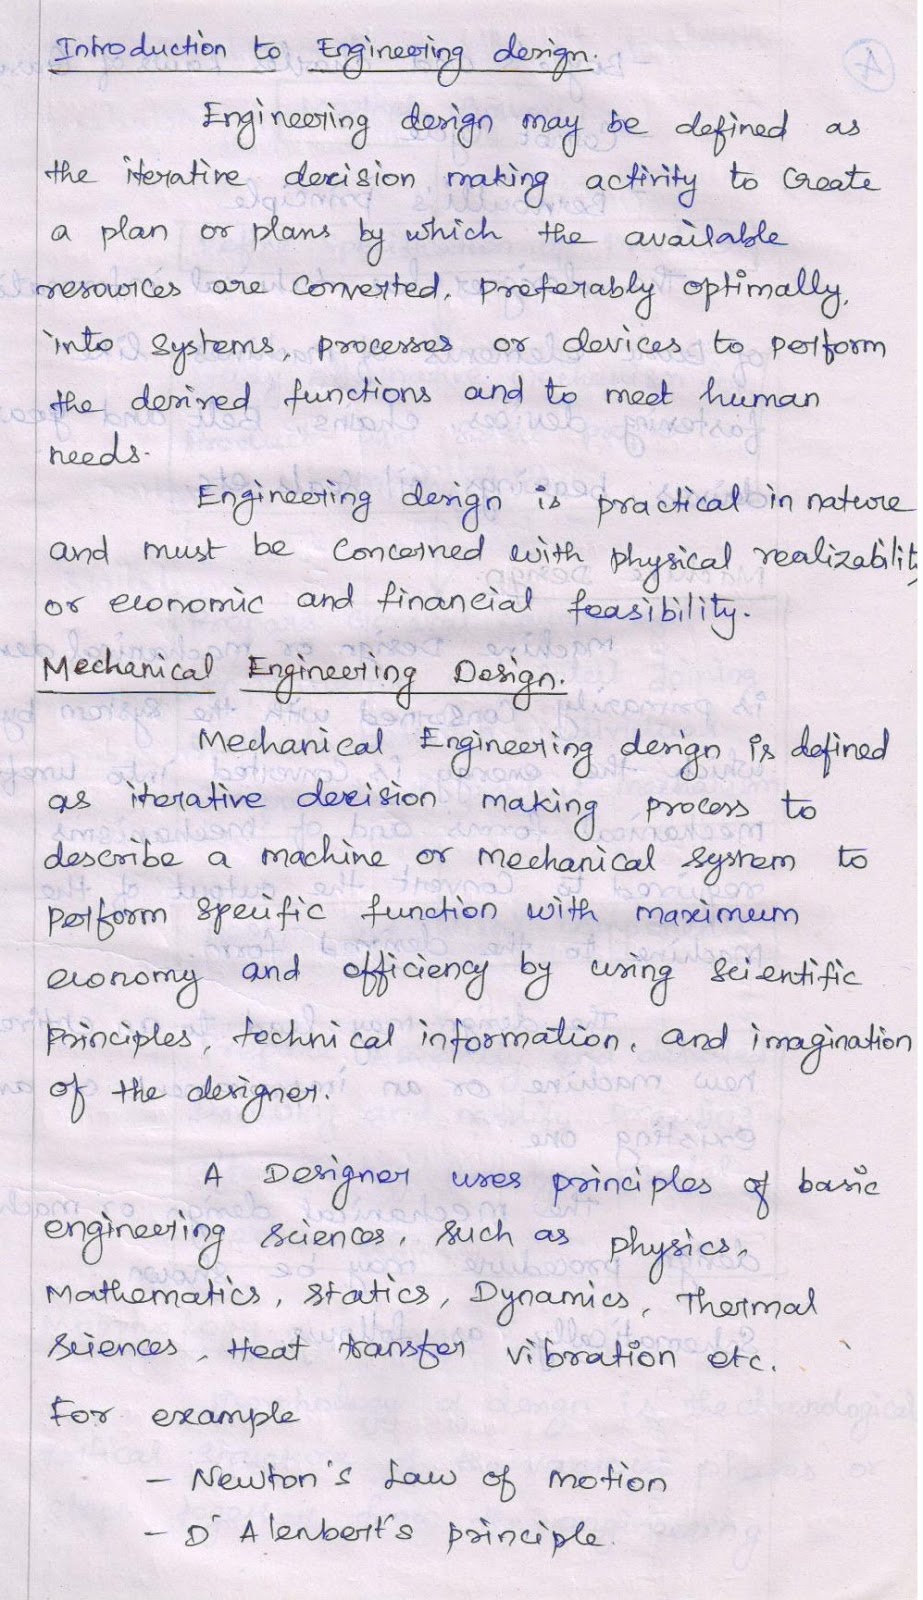 Introduction to Engineering design.
Engineering design may be defined as
the iterative decision making activity to create
a plan or plans by which the available
resources are converted, preferably optimally,
into systems, processes or devices to perform
the desired functions and to meet human
needs.
Engineering design is practical in nature
and must be concerned with physical realizability
or economic and financial feasibility.
Mechanical Engineering Design.
Mechanical Engineering design is defined
as iterative decision making process to
describe a machine or mechanical system to
perform specific function with maximum
economy and efficiency by using scientific
principles, technical information, and imagination
of the designer.
A Designer uses principles of basic
engineering sciences, such as physics,
Mathematics, statics, Dynamics, Thermal
sciences, Heat transfer vibration etc.
For example
- Newton's Law of motion
- D'Alenbert's principle.